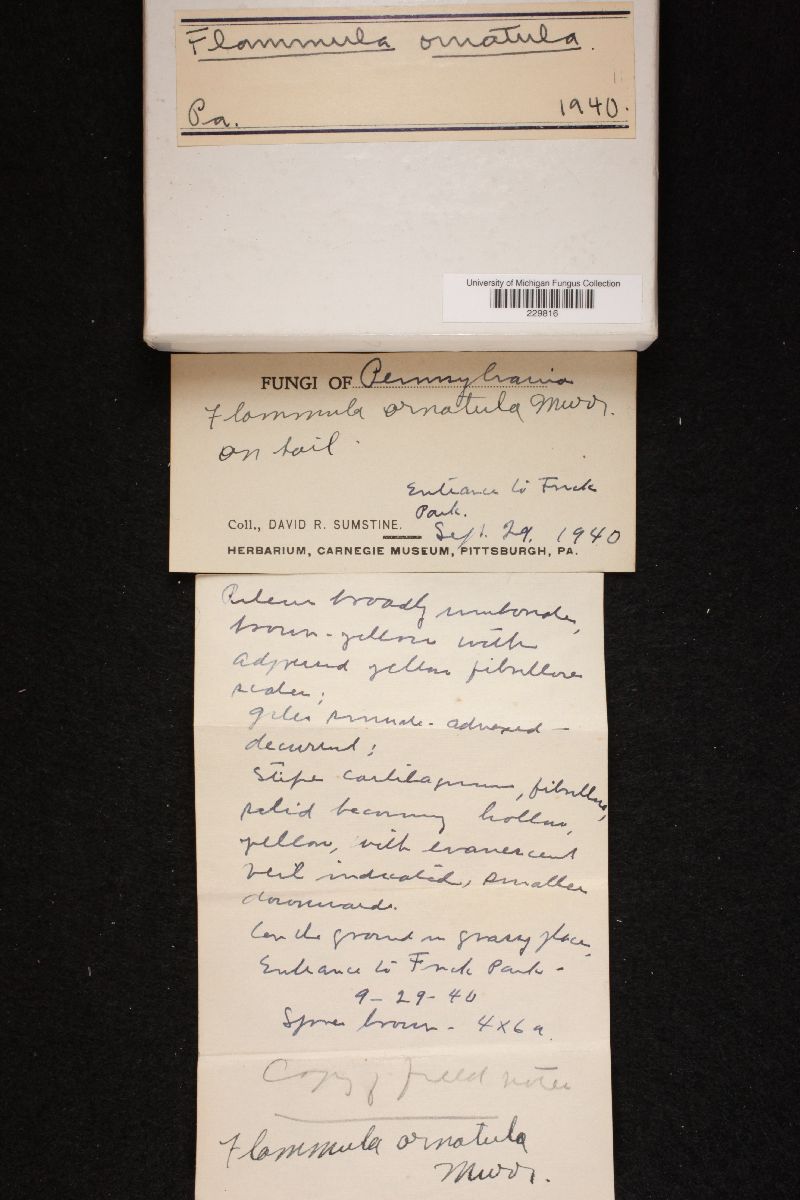 Flammula ornatula.
Pa. 1940.
University of Michigan Fungus Collection
229816
FUNGI OF Pennsylvania
Flammula ornatula Murr.
on soil.
Entrance to Frick
Park.
Coll., DAVID R. SUMSTINE. Sept. 29, 1940
HERBARIUM, CARNEGIE MUSEUM, PITTSBURGH, PA.
Pileus broadly umbonate,
brown-yellow with
adpressed yellow fibrillose
scales;
gills sinuate-adnexed-
decurrent;
Stipe cartilaginous, fibrillose,
solid becoming hollow,
yellow, with evanescent
veil indicated, smaller
downwards.
On the ground in grassy place,
Entrance to Frick Park-
9-29-40
Spores brown - 4x6
Copy of field notes
Flammula ornatula
Murr.